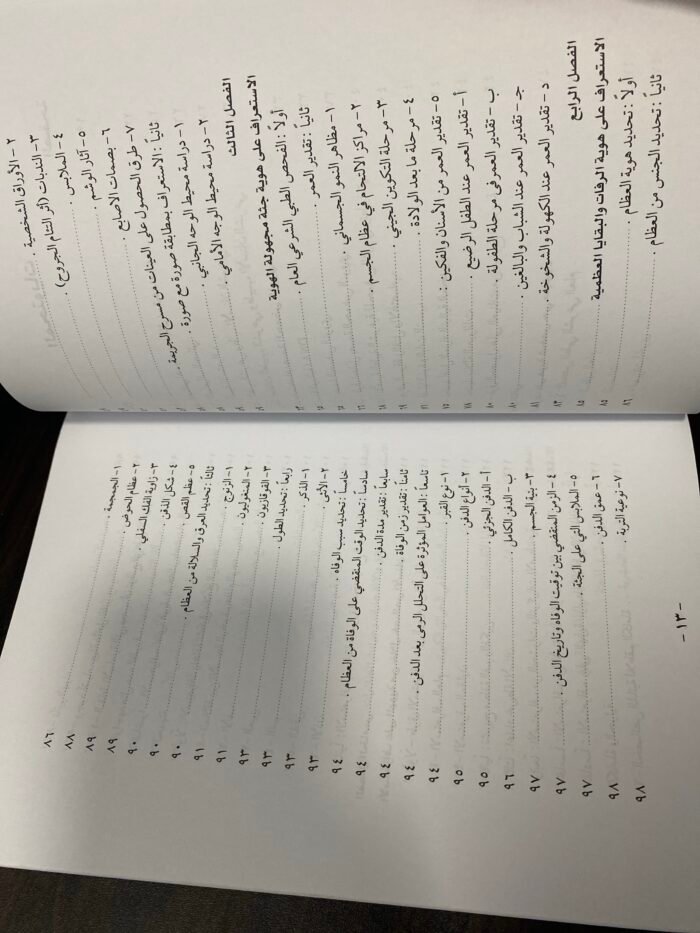 ٢- الأوراق الشخصية .
٣- الندبات (أثر التئام الجروح) .
٤- الملابس .
٥- آثار الوشم .
٦- بصمات الاصابع .
٧- طرق الحصول على العينات من مسرح الجريمة .
ثانياً : الاستعراف بمطابقة صورة مع صورة
١- دراسة محيط الوجه الجانبي .
٢- دراسة محيط الوجه الأمامي .
الفصل الثالث
الاستعراف على هوية جثة مجهولة الهوية
أولاً : الفحص الطبي الشرعي العام .
ثانياً : تقدير العمر .
١- مظاهر النمو الجسماني .
٢- مراكز الالتحام في عظام الجسم .
٣- مرحلة التكوين الجنيني .
٤- مرحلة ما بعد الولادة .
٥- تقدير العمر من الأسنان والفكين : ٧٥
أ- تقدير العمر عند الطفل الرضيع . ٧٨
ب- تقدير العمر في مرحلة الطفولة . ٨٠
جـ- تقدير العمر عند الشباب والبالغين . ٨٠
د- تقدير العمر عند الكهولة والشخوخة . ٨١
الفصل الرابع ٨٣
الاستعراف على هوية الرفات والبقايا العظمية ٨٥
أولاً : تحديد هوية العظام . ٨٥
ثانياً : تحديد الجنس من العظام . ٨٦
١- الجمجمة . ٨٦
٢- عظام الحوض . ٨٨
٣- زاوية الفك السفلي . ٨٩
٤- شكل الذقن . ٨٩
٥- عظم القص . ٩٠
ثالثاً : تحديد العرق والسلالة من العظام . ٩٠
١- الزنوج . ٩٠
٢- المنغوليون . ٩١
٣- القوقازيون . ٩١
رابعاً : تحديد الطول . ٩٣
١- الذكر . ٩٣
٢- الأنثى . ٩٣
خامساً : تحديد سبب الوفاه . ٩٣
سادساً : تحديد الوقت المنقضي على الوفاة من العظام . ٩٤
سابعاً : تقدير مدة الدفن . ٩٤
ثامناً : تقدير زمن الوفاة . ٩٤
تاسعاً : العوامل المؤثرة على التحلل الرمي بعد الدفن . ٩٤
١- نوع القبر ٩٤
٢- أنواع الدفن . ٩٥
أ- الدفن الجزئي . ٩٥
ب- الدفن الكامل . ٩٦
٣- بنية الجسم . ٩٧
٤- الزمن المنقضي بين توقيت الوفاه وتاريخ الدفن . ٩٧
٥- الملابس التي على الجثة . ٩٧
٦- عمق الدفن . ٩٨
٧- نوعية التربة . ٩٨
- ١٣ -